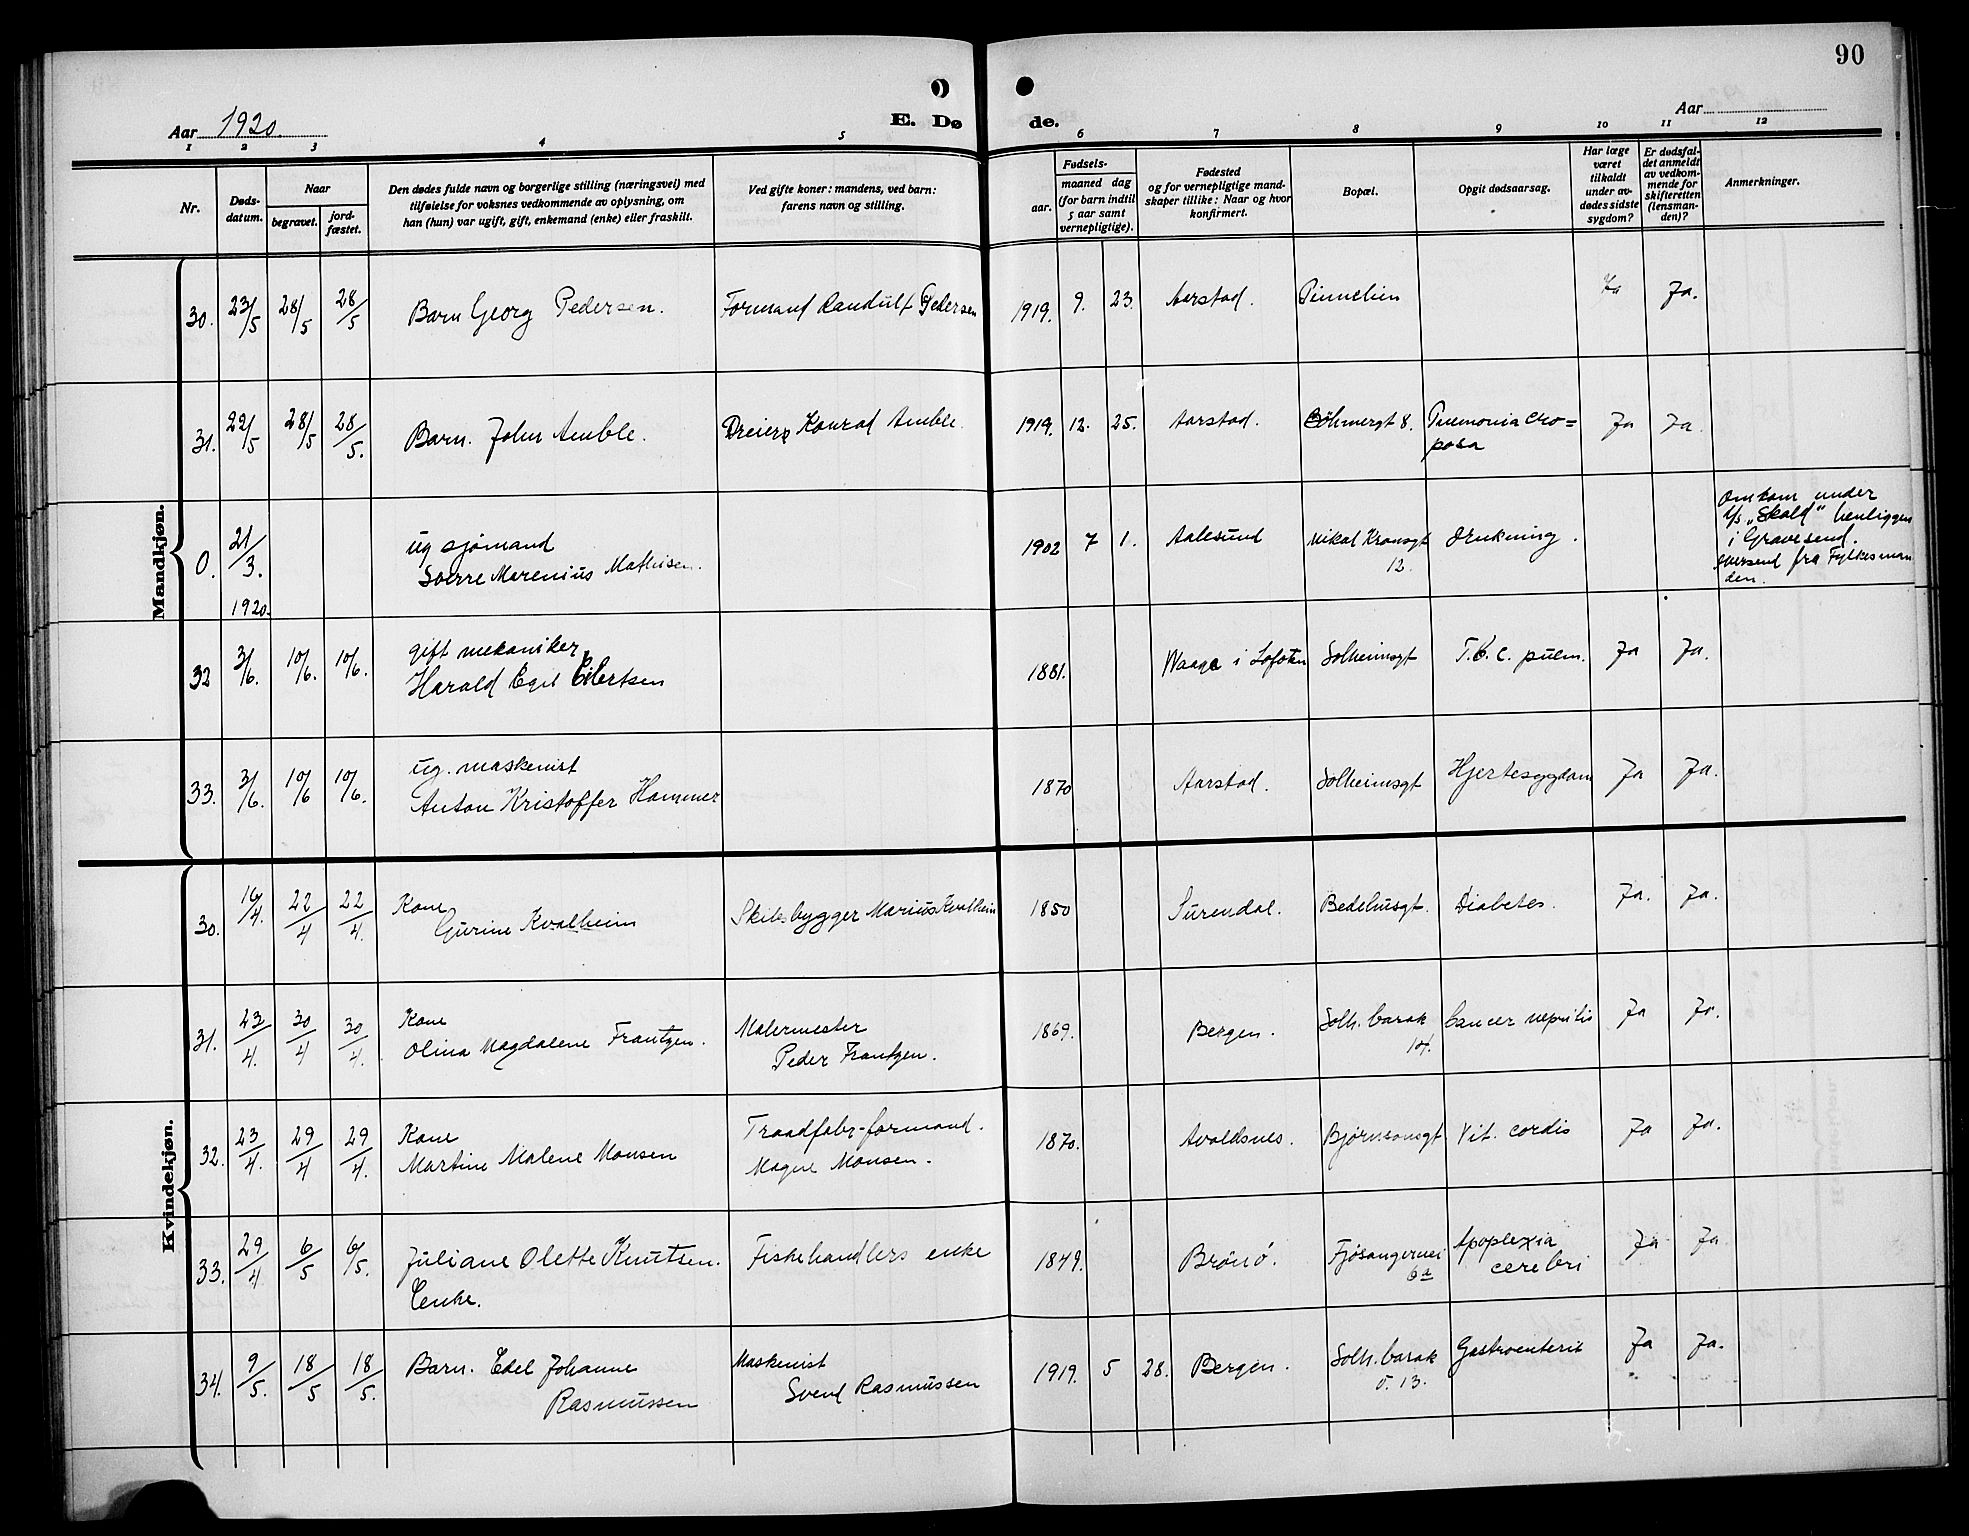 90
Aar 1920.
E. Dø de.
Aar
1 2 3 4 5 6 7 8 9 10 11 12
Nr.
Døds-
datum.
Naar
begravet.
jord-
fæstet.
Den dødes fulde navn og borgerlige stilling (næringsvei) med
tilføielse for voksnes vedkommende av oplysning, om
han (hun) var ugift, gift, enkemand (enke) eller fraskilt.
Ved gifte koner: mandens, ved barn:
farens navn og stilling.
Fødsels-
aar.
maaned dag
(for barn indtil
5 aar samt
vernepligtige).
Fødested
og for vernepligtige mand-
skaper tillike: Naar og hvor
konfirmert.
Bopæl.
Opgit dødsaarsag.
Har læge
været
tilkaldt
under av-
dødes sidste
sygdom?
Er dødsfal-
det anmeldt
av vedkom-
mende for
skifteretten
(lensman-
den)?
Anmerkninger.
Mandkjøn.
30. 23/5 28/5 28/5 Barn Georg Pedersen. Formand Randulf Pedersen 1919. 9. 23. Aarstad. Ja Ja.
31. 22/5 28/5 28/5. Barn. John Amble. Dreier Konrad Amble. 1919. 12. 25. Aarstad. Böhmergt 8. Pnemonia cro=
posa Ja Ja.
O. 21/3. 1920. ug sjömand
Sverre Marenius Mathisen. 1902 7 1. Aalesund Nikal Kronsgt
12. Drukning.
Omkom under
t/s "Skald" henliggen
i Gravesend.
oversend fra Fylkesman
den.
32 3/6. 10/6. 10/6. gift mekaniker
Harald Egil Eilertsen 1881. Waage i Lofoten Solheimsgt T.b.c. pulm. Ja Ja.
33. 3/6. 10/6 10/6. ug. maskenist
Anton Kristoffer Hammer 1870 Aarstad. Solheimsgt Hjertesygdom Ja Ja.
Kvindekjøn.
30. 16/4. 22/4 22/4. Kone
Gurine Kvalheim Skibsbygger Marius Kvalheim 1850 Surendal. Bedehusgt. Diabetes. Ja. Ja.
31. 23/4. 30/4 30/4. Kone
Olina Magdalene Frantzen. Malermester
Peder Frantzen. 1869. Bergen. Solh. barak
14. Cancer Ja Ja.
32. 23/4. 29/4 29/4. Kone
Martine Malene Monsen Traadfabr-formand.
Magne Monsen. 1870. Avaldsnes. Bjørnsonsgt. Vit. cordis Ja Ja.
33. 29/4 6/5 6/5. Juliane Olette Knutsen.
Enke. Fiskehandlers enke 1849. Brönö. Fjösangervei
6a Apoplexia
cerebri Ja Ja
34. 9/5. 18/5 18/5. Barn. Edel Johanne
Rasmussen Maskenist
Svend Rasmussen 1919. 5 28. Bergen. Solh. barak
5. 13. Gastroenterit Ja Ja.